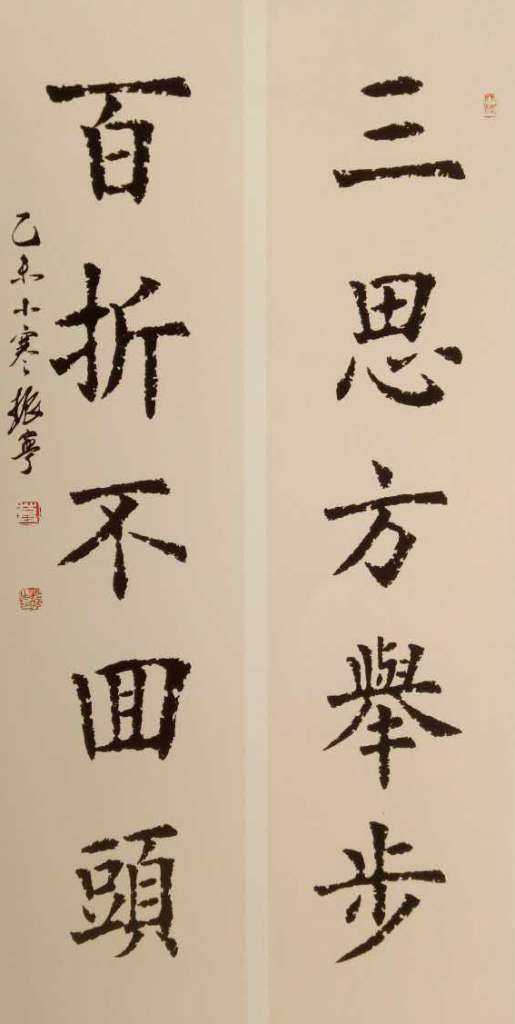 三思方舉步
百折不囬頭
乙未小寒振亭